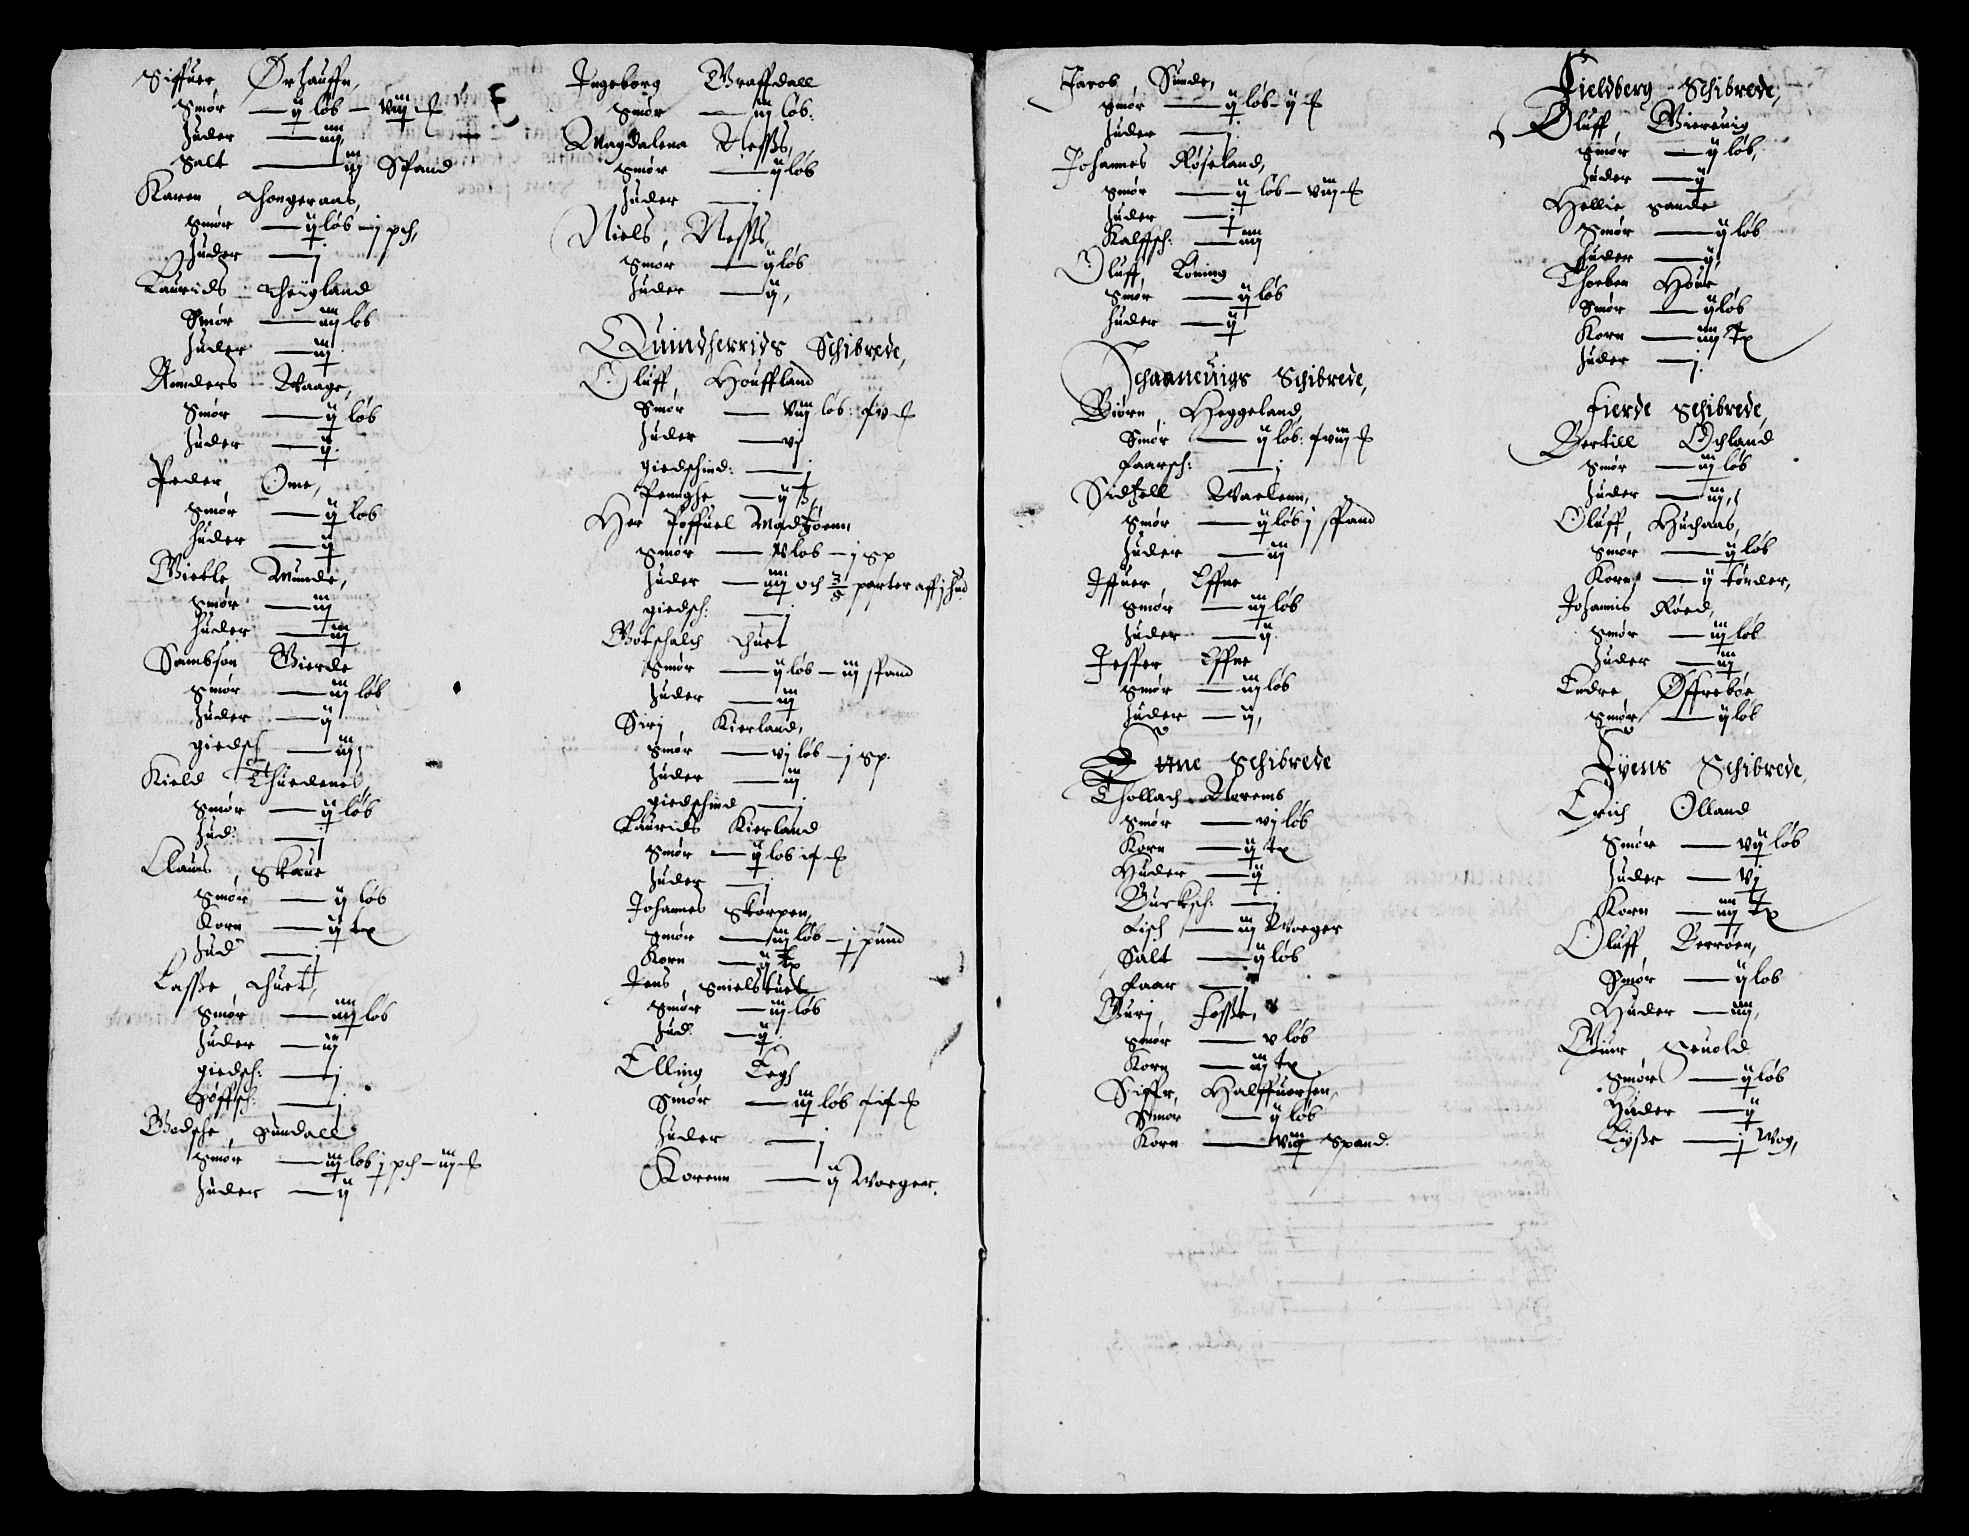 Siffuer Ørhauffn,
Smør — ij løb — viij ₥
Huder — iiij
Salt — iij Spand
Karen Longeraas,
Smør — ij løb — j pch,
Huder — j
Laurids Theigland
Smør — iij løb
Huder — iij
Anders Waage,
Smør — ij løb
Huder — ij
Peder Ome,
Smør — ij løb
Huder — ij
Munde,
Smør — iij
Huder — iij
Sambson Gierde
Smør — iij løb
Huder — ij
giedsch — iij
Kield Thuedenes
Smør — ij løb
Hud: — j
Claus, Skaue
Smør — ij løb
Korn — ij tr
Hud — j
Lasse Thuet,
Smør — iiij løb
Huder — ij
giedsch: — j
Høffsch: — j
Godsche Sundall
Smør — iij løb j pch — iij
Huder — ij
Ingeborg Graffdall
Smør — iij løb:
Magdalena Nesss,
Smør — ij løb
Huder — j
Niels, Nesss,
Smør — ij løb
Huder — ij,
Quindherrids Schibrede,
Oluff, Houffland
Smør — viij løb:
Huder — vj
giedschind: — j
Penughe — ij
Her Poffuel
Smør — v løb — j sp
Huder — iiij och 3/5 parter aff j hud
giedsch: — j
Gotschalch Thuet
Smør — ij løb — iij spand
Huder — iij
Sirj Kierland,
Smør — vj løb — j sp
Huder — iij
giedschind — j
Laurids Kierland
Smør — ij løb
Huder — j
Johannes Skorpen,
Smør — iij løb — j pund
Korn — ij tr
Jens, Snielstuet
Smør — iij løb
Hud — ij
Elling Eegs
Smør — iij løb
Huder — j
Korenn — ij Woeger.
Jacob Sunde,
Smør — ij løb — ij
Huder — j
Johannes Røseland,
Smør — ij løb — viij
Huder — j
Kalffsch: — iiij
Oluff
Smør — ij løb
Huder — ij
Schaaneuigs Schibrede,
Biørn Heggeland,
Smør — ij løb:
Faarsch: — j
Sidsell
Smør — ij løb j spand
Huder — iij
Iffuer Effne
Smør — iij løb
Huder — ij
Jesper Effne
Smør — iij løb
Huder — ij,
Etne Schibrede
Thollach Norems
Smør — vj løb
Korn — ij tr
Huder — ij
Bucksch: — j
Fisch — iij Woeger
Salt — ij løb
Faar — j
Gurj Fosse,
Smør — v løb
Korn — iij tr
Siffr, Halffuorsen,
Smør — ij løb
Korn — viij Spand.
Fieldberg Schibrede,
Oluff Biereuig
Smør — ij løb,
Huder — ij
Hellie Sande
Smør — ij løb
Huder — ij
Thorben
Smør — ij løb
Korn — iiij tr
Huder — j.
Fierde Schibrede,
Bertill Ochland
Smør — iij løb
Huder — iij,
Oluff, Huchaas,
Smør — ij løb
Korn — ij tønder,
Johanis Røed,
Smør — iij løb
Huder — iij
Endre Øffrebøe
Smør — ij løb
Føens Schibrede,
Erich Olland
Smør — vij løb
Huder — vj
Korn — iiij tr
Oluff Berrøen,
Smør — ij løb
Huder — iiij,
Seuold
Smør — ij løb
Huder — ij
Lysse — j Wog,